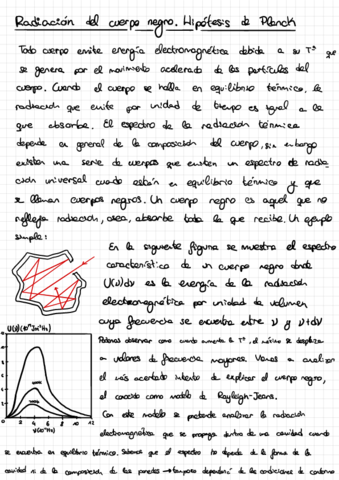 Radiación del cuerpo negro. Hipótesis de Planck
Todo cuerpo emite energía electromagnética debida a su Tª que
se genera por el movimiento acelerado de las partículas del
cuerpo. Cuando el cuerpo se halla en equilibrio térmico, la
radiación que emite por unidad de tiempo es igual a la
que absorbe. El espectro de la radiación térmica
depende en general de la composición del cuerpo, sin embargo
existen una serie de cuerpos que emiten un espectro de radia
ción universal cuando están en equilibrio térmico y que
se llaman cuerpos negros. Un cuerpo negro es aquel que no
refleja radiación, osea, absorbe toda la que recibe. Un ejemplo
simple:
En la siguiente figura se muestra el espectro
característico de un cuerpo negro donde
U(ν)dν es la energía de la radiación
electromagnética por unidad de volumen
cuya frecuencia se encuentra entre ν y ν+dν
Podemos observar como cuando aumenta la Tª, el máximo se desplaza
a valores de frecuencia mayores. Vamos a analizar
el más acertado intento de explicar el cuerpo negro,
el conocido como modelo de Rayleigh-Jeans.
Con este modelo se pretende analizar la radiación
electromagnética que se propaga dentro de una cavidad cuando
se encuentra en equilibrio térmico. Sabemos que el espectro no depende de la forma de la
cavidad ni de la composición de las paredes → tampoco dependerá de las condiciones de contorno
0 2 4 6 8 10 12